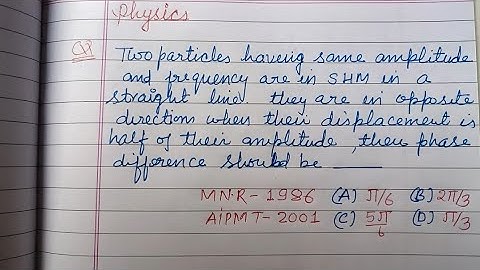 Physics
Q Two particles having same amplitude
and frequency are in SHM in a
straight line they are in opposite
direction when their displacement is
half of their amplitude, then phase
difference should be ____
MNR-1986 (A) π/6 (B) 2π/3
AIPMT-2001 (C) 5π/6 (D) π/3